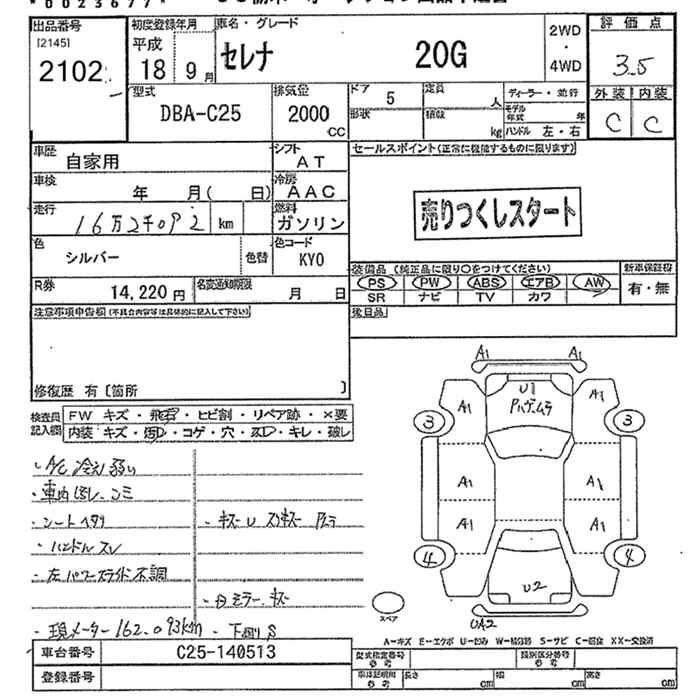 *0023677*
出品番号
[2145]
2102
初度登録年月
平成
18 9月
車名・グレード
セレナ 20G
2WD
・
4WD
評価点
3.5
外装 内装
C C
型式
DBA-C25
排気量
2000
CC
ドア 5
形状
定員 人
積載 kg
ディーラー・並行
モデル年式 年
ハンドル 左・右
車歴 自家用
シフト AT
車検 年 月( 日)
冷房 AAC
走行 16万2千092 km
燃料 ガソリン
色 シルバー 色替
色コード KY0
R券 14,220円
名変通知期限 月 日
セールスポイント(正常に機能するものに限ります)
売りつくしスタート
装備品(純正品に限り○をつけてください)
PS PW ABS エアB AW
SR ナビ TV カワ
新車保証書
有・無
後日品
注意事項申告欄(不具合内容等は具体的に記入して下さい)
修復歴 有〔箇所 〕
検査員記入欄
FW キズ・飛石・ヒビ割・リペア跡・×要
内装 キズ・汚れ・コゲ・穴・スレ・キレ・破レ
・A/C 冷え弱い
・車内汚レ、ゴミ
・シートヘタリ
・ハンドルスレ
・左パワースライド不調
・現メーター162.093km
・下廻りS
A1 A1
U1
A1 A1
3 3
A1 A1
A1 A1
4 4
U2
UA2
スペア
A-キズ E-エクボ U-凹み W-補修跡 S-サビ C-腐食 XX-交換済
車台番号 C25-140513
登録番号
型式指定番号 参考
類別区分番号 参考
車体証明用 参考
長さ cm
幅 cm
高さ cm